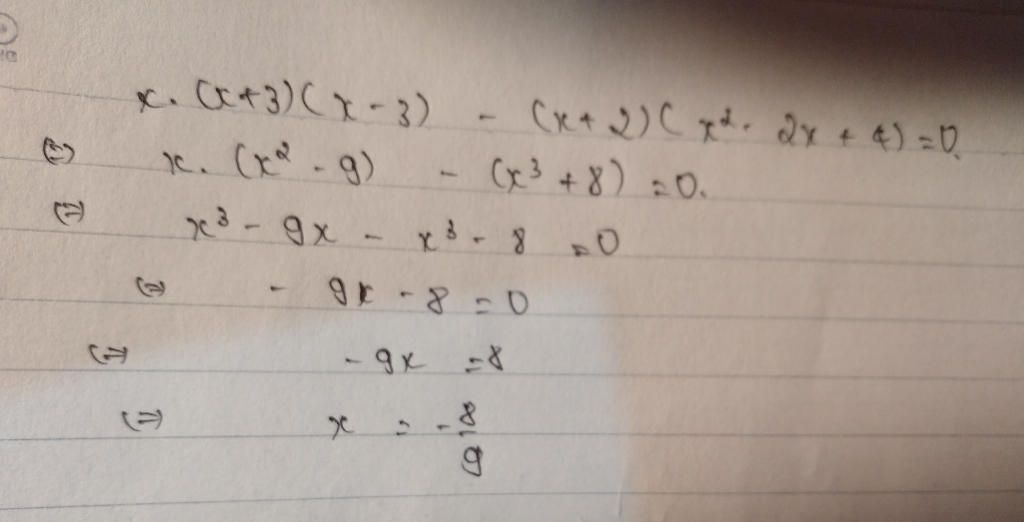 x. (x+3)(x-3) - (x+2)(x². 2x + 4)=0.
(=) x. (x² - 9) - (x³ + 8) =0.
(=) x³ - 9x - x³ - 8 =0
(=) - 9x - 8 = 0
(=) - 9x = 8
(=) x = - 8/9